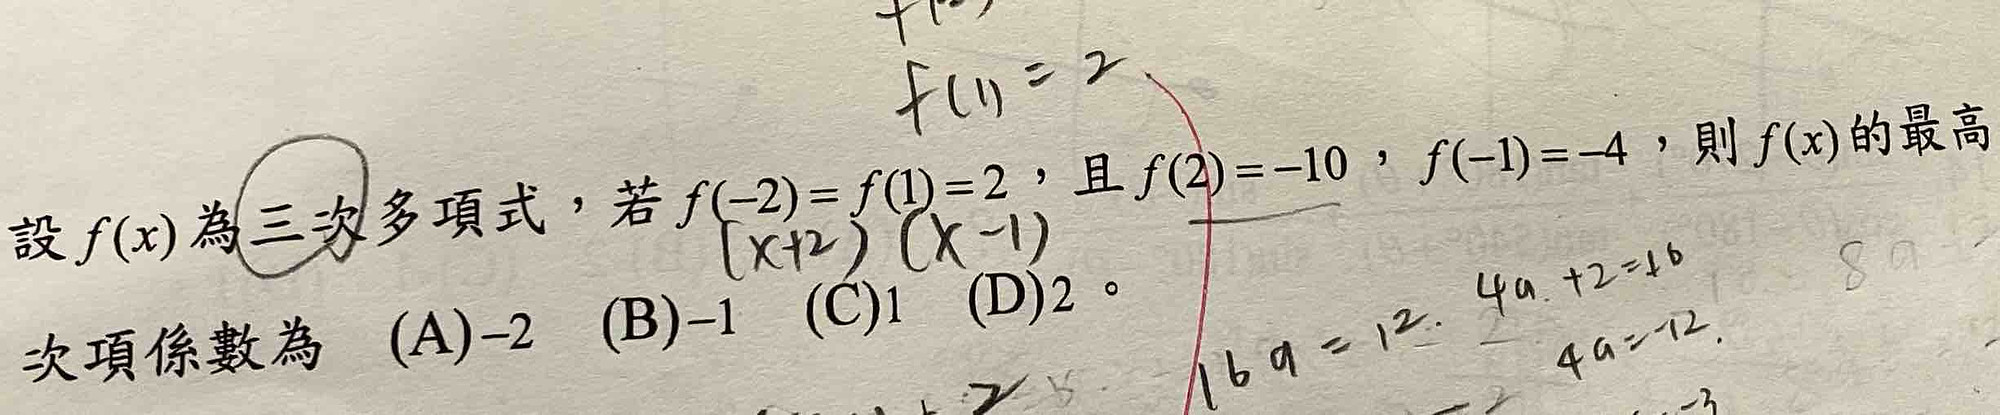 f(1) = 2
設 f(x) 為三次多項式，若 f(-2) = f(1) = 2，且 f(2) = -10，f(-1) = -4，則 f(x) 的最高
(x+2) (x-1)
次項係數為 (A)-2 (B)-1 (C)1 (D)2。
4a. +2=+6
8a
16a = 12.
4a=-12.
2
-3